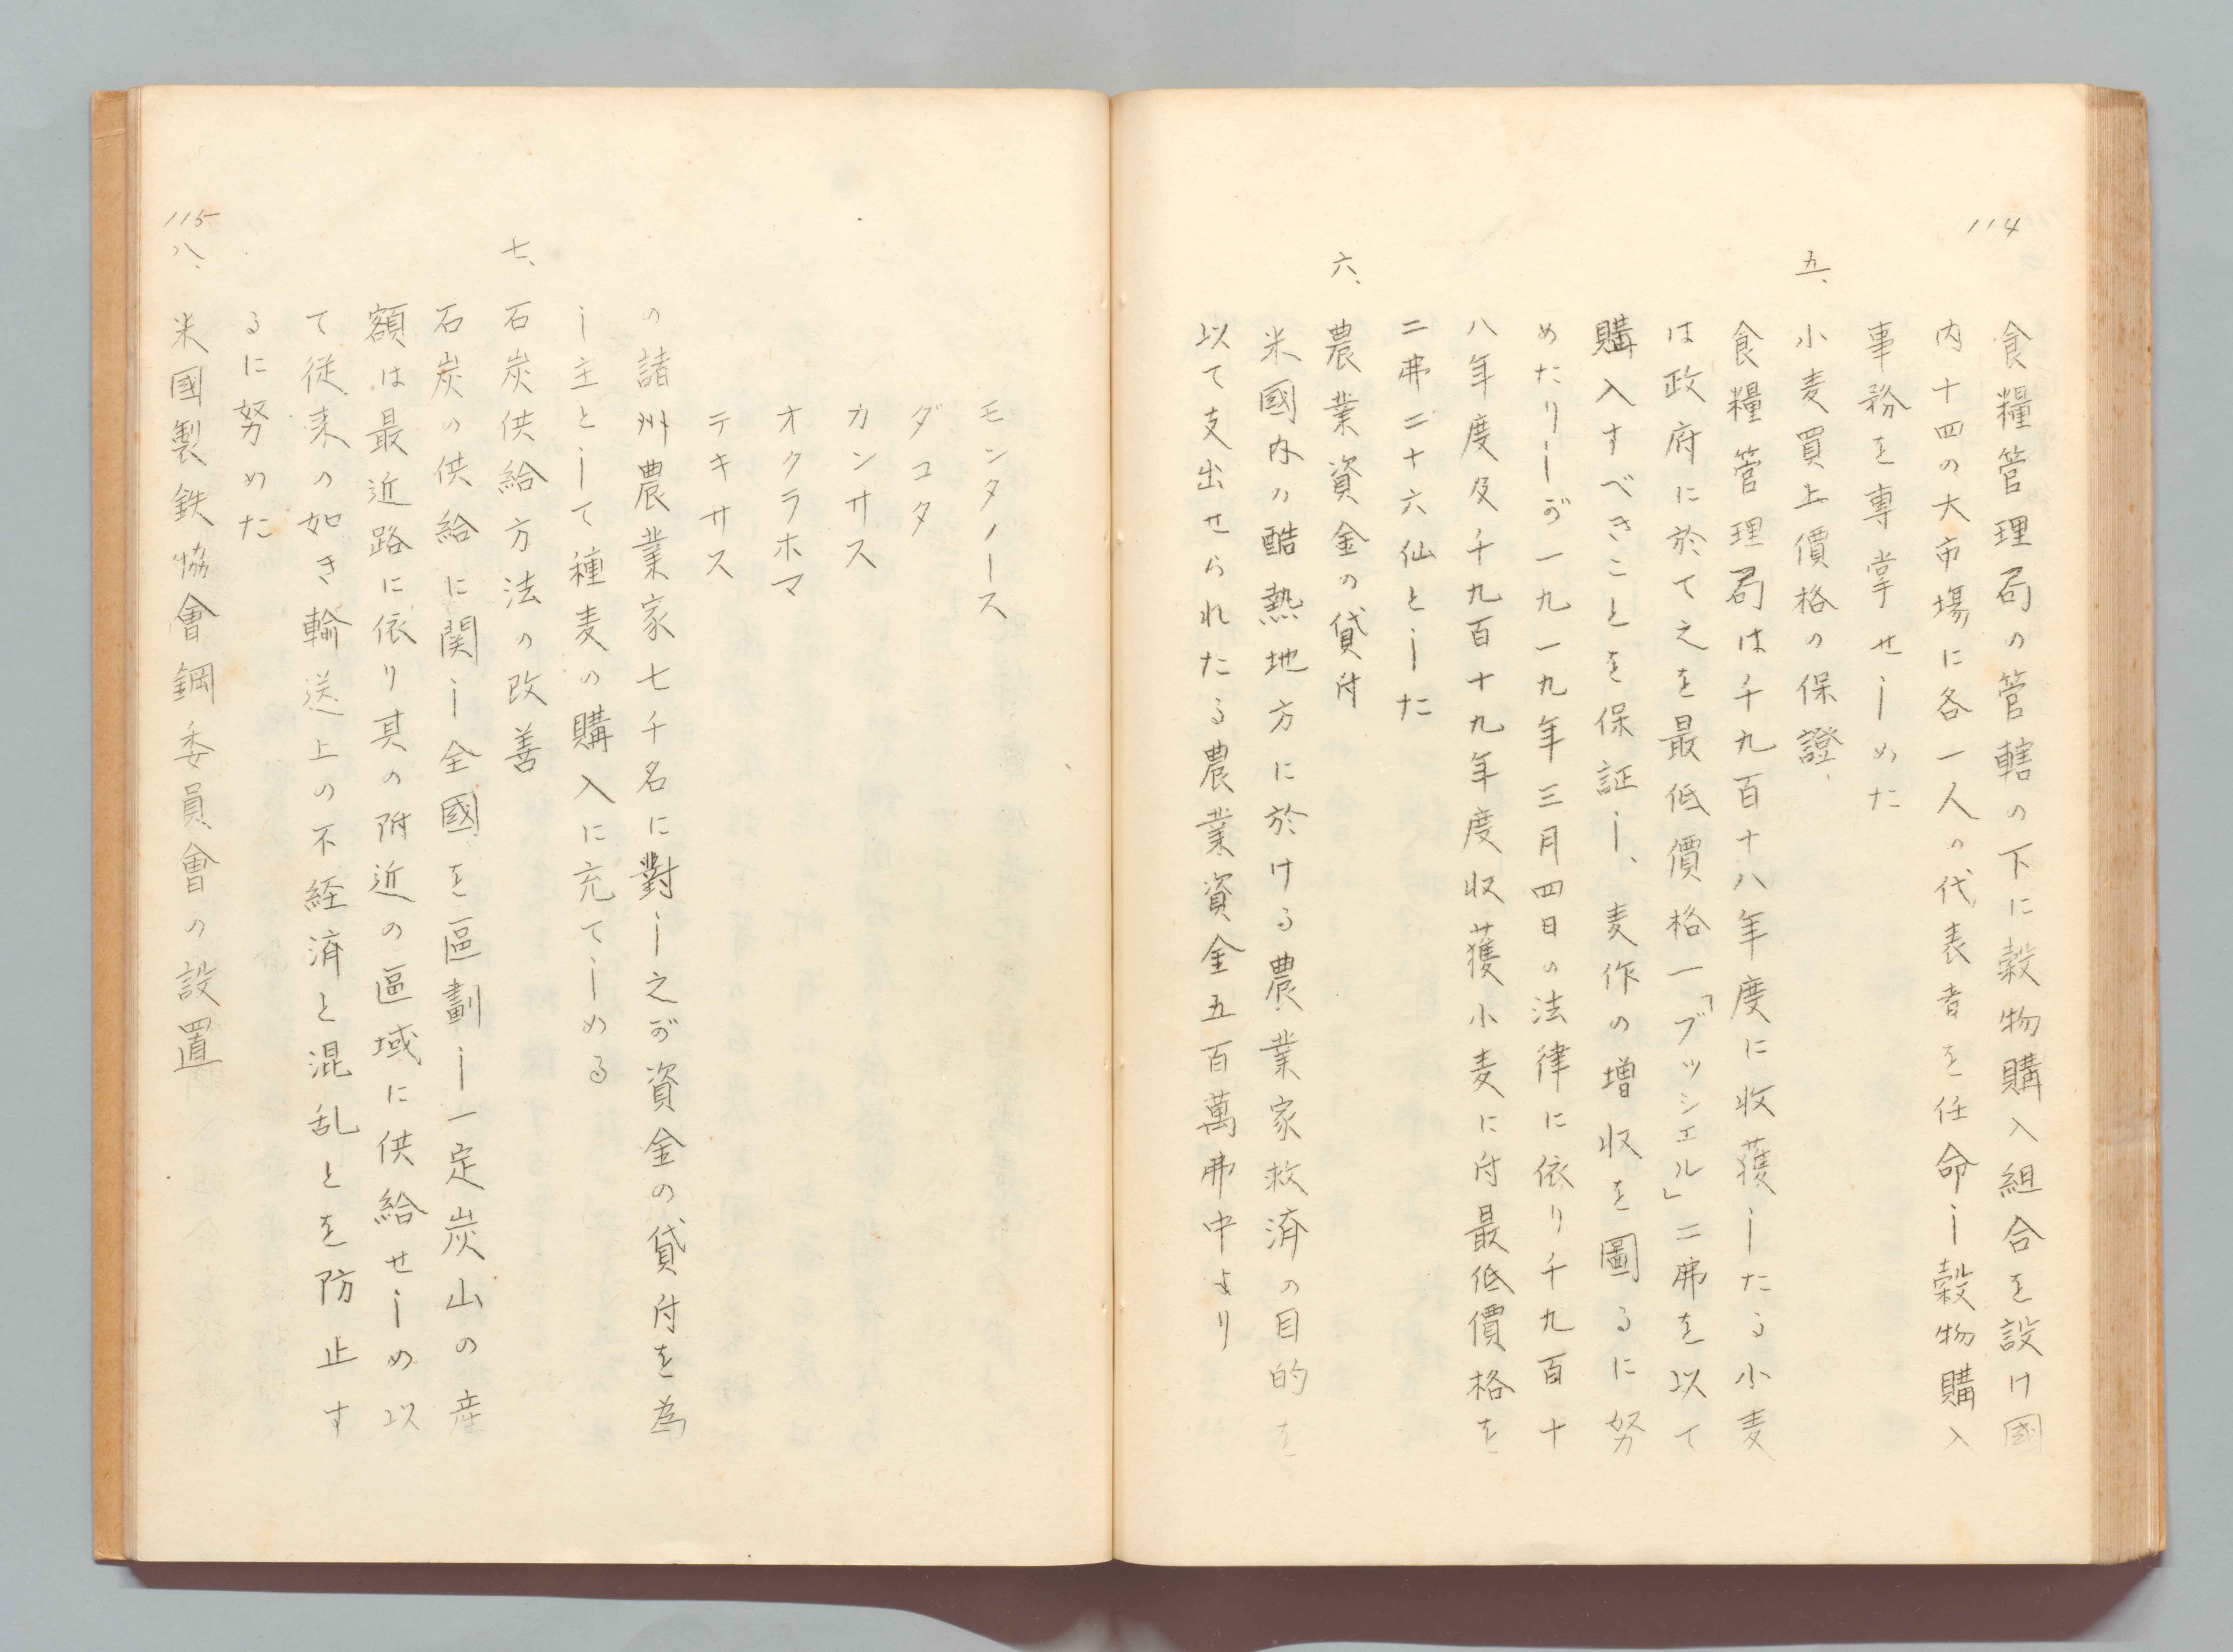 114
食糧管理局の管轄の下に穀物購入組合を設け國
内十四の大市場に各一人の代表者を任命し穀物購入
事務を專掌せしめた
五、小麦買上價格の保證
食糧管理局は千九百十八年度に收獲したる小麦
は政府に於て之を最低價格一「ブッシエル」二弗を以て
購入すべきことを保証し、麦作の増収を圖るに努
めたりしが一九一九年三月四日の法律に依り千九百十
八年度及千九百十九年度収獲小麦に付最低價格を
二弗二十六仙とした
六、農業資金の貸付
米國内の酷熱地方に於ける農業家救済の目的を
以て支出せられたる農業資金五百萬弗中より
モンタノース
ダコタ
カンサス
オクラホマ
テキサス
の諸州農業家七千名に對し之が資金の貸付を為
し主として種麦の購入に充てしめる
七、石炭供給方法の改善
石炭の供給に関し全國を區劃し一定炭山の産
額は最近路に依り其の附近の區域に供給せしめ以
て従来の如き輸送上の不経済と混乱とを防止す
るに努めた
115
八、米國製鉄協會鋼委員會の設置